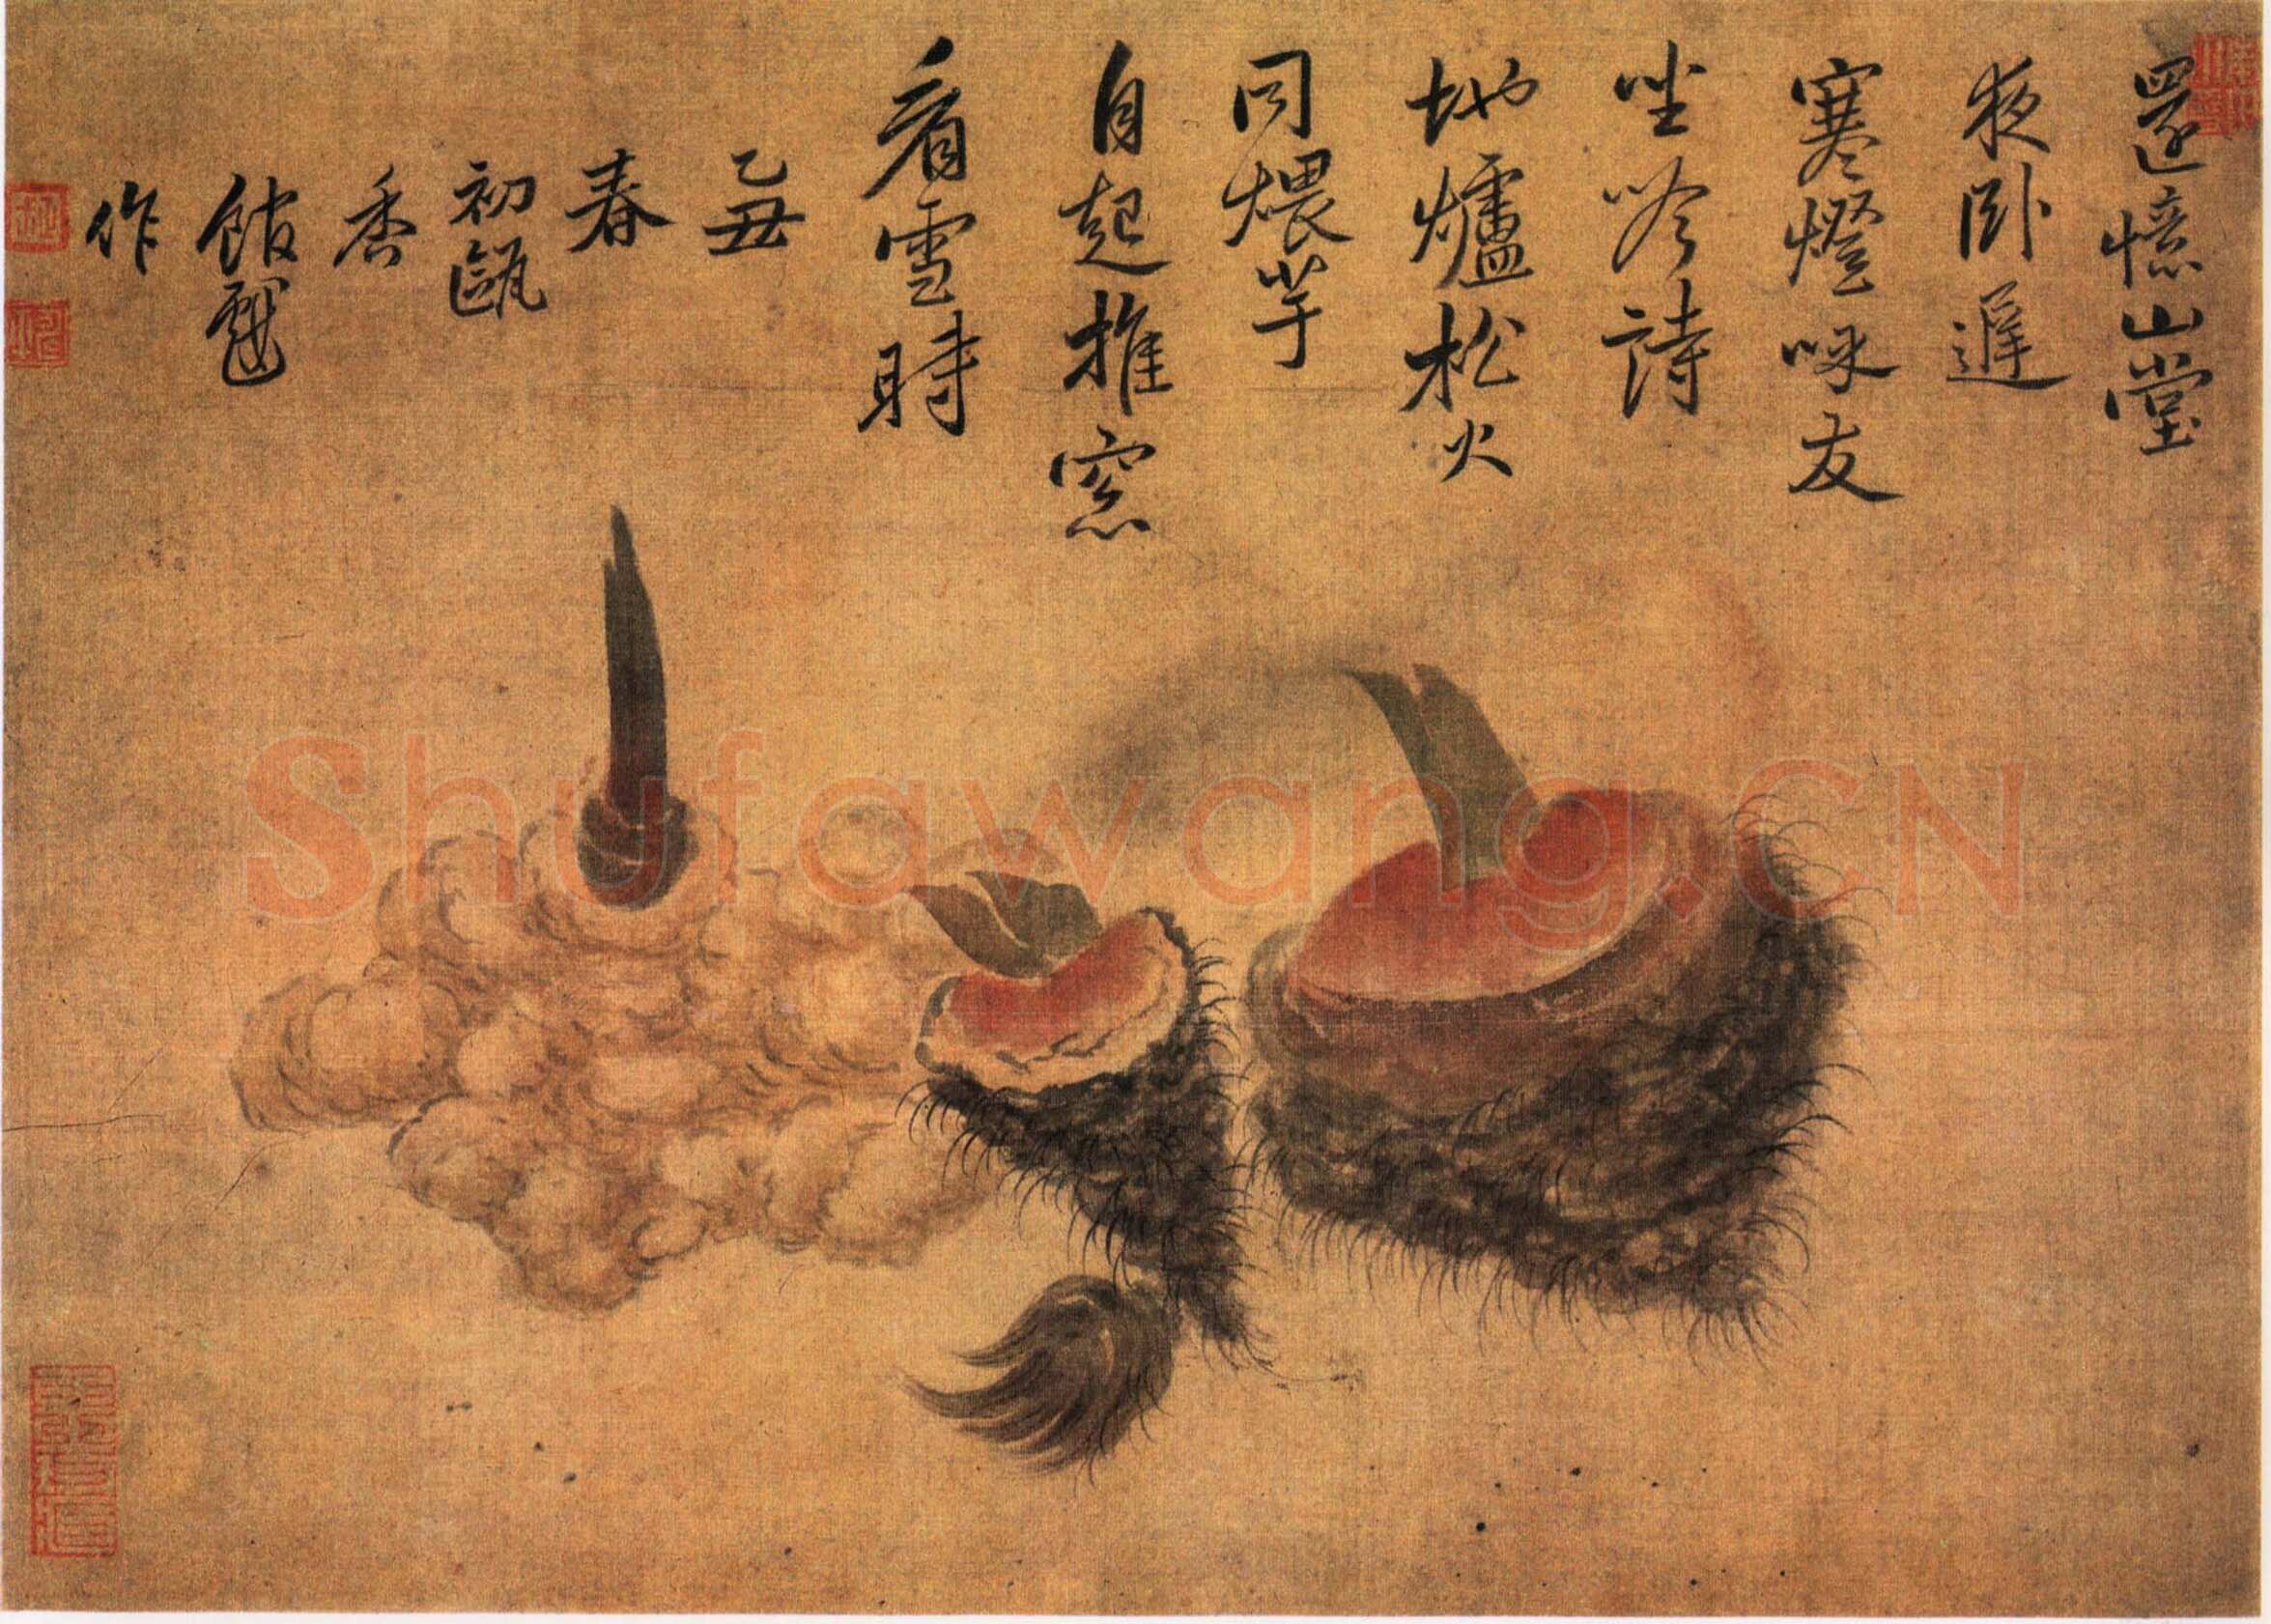 還憶山堂
夜卧遲
寒燈呼友
坐吟詩
地爐松火
同煨芋
自起推窓
看雪時
乙丑
春
初甌
香
館戲
作
Shufawang.CN